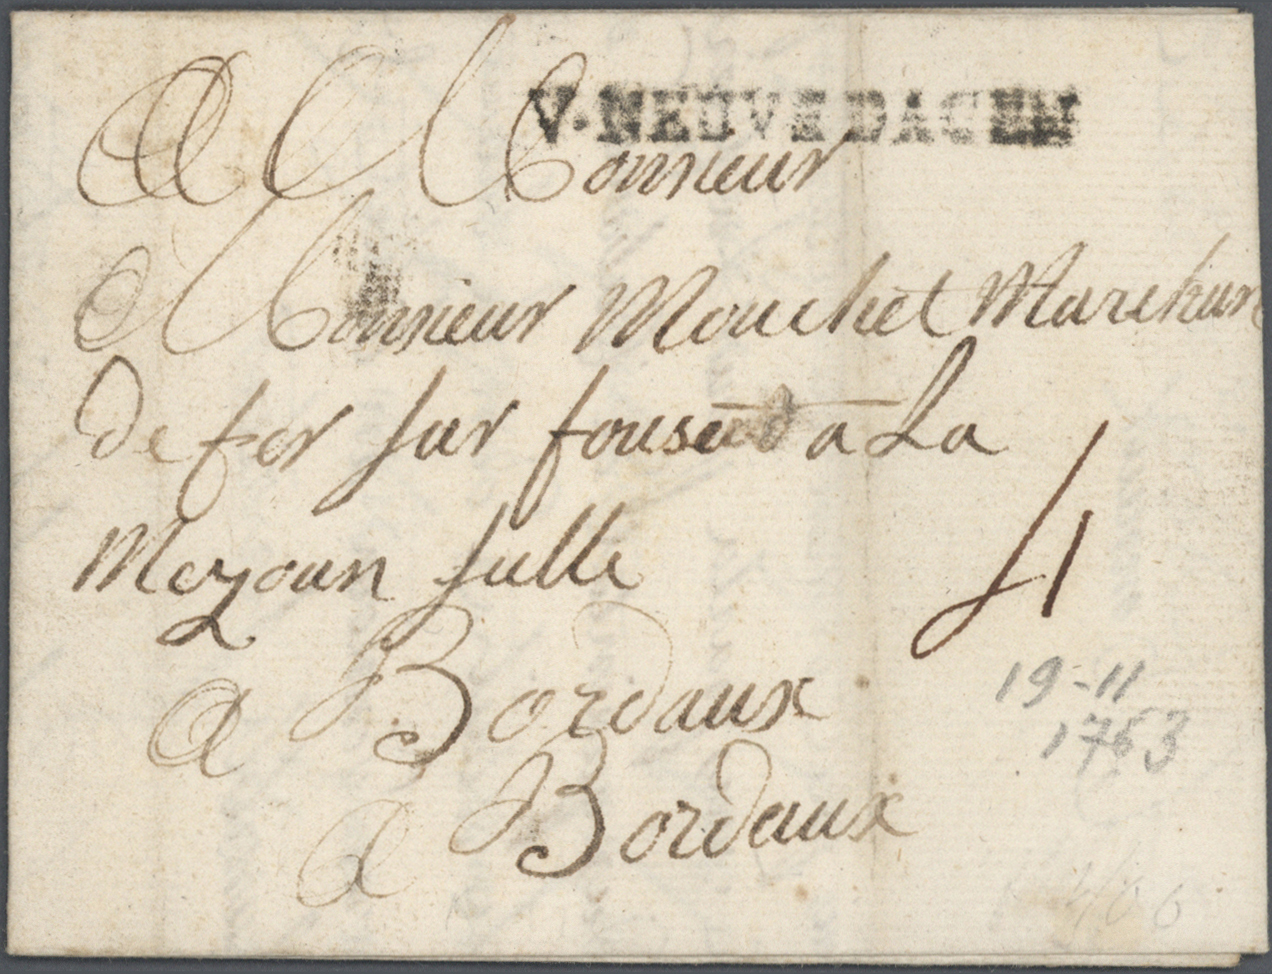 V·NEUVE DAGEN
A Monsieur
Monsieur Mouchet Marchan
de fer sur fousé a La
Mezoun sulle
4
a Bordaux
19-11
1763
a Bordaux